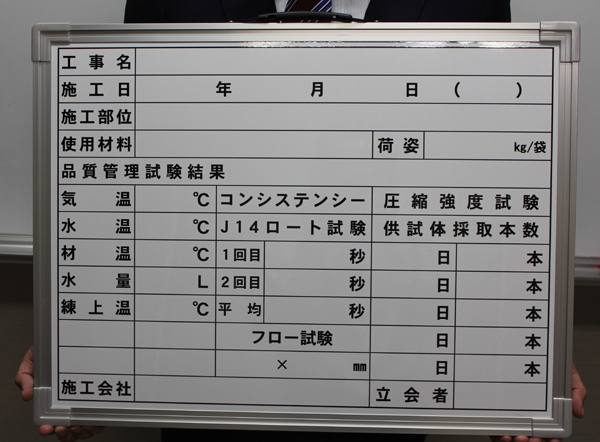 工事名
施工日 年 月 日 ( )
施工部位
使用材料 荷姿 kg/袋
品質管理試験結果
気温 ℃ コンシステンシー 圧縮強度試験
水温 ℃ J14ロート試験 供試体採取本数
材温 ℃ 1回目 秒 日 本
水量 L 2回目 秒 日 本
練上温 ℃ 平均 秒 日 本
フロー試験 日 本
× ㎜ 日 本
施工会社 立会者